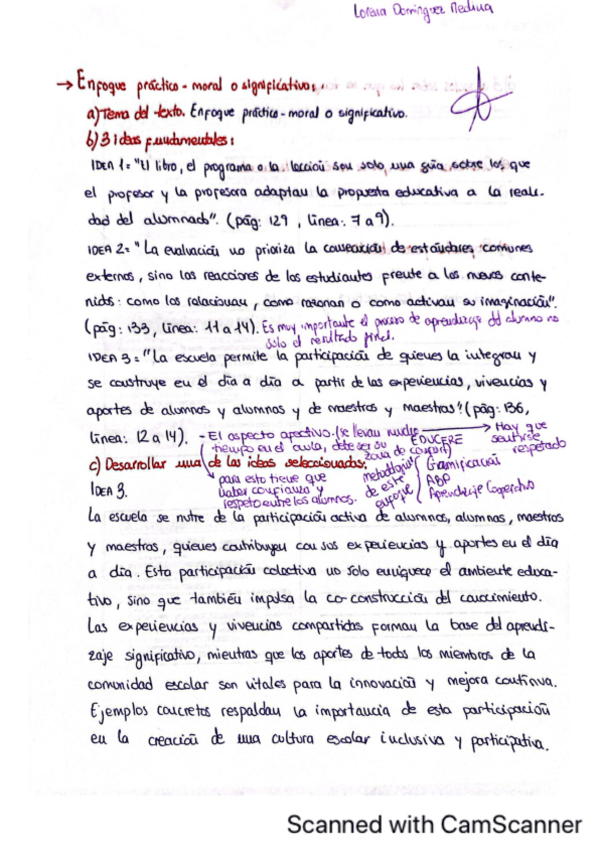 Lorena Domínguez Medina
→ Enfoque práctico - moral o significativo:
a) Tema del texto. Enfoque práctico - moral o significativo.
b) 3 ideas fundamentales:
IDEA 1= "El libro, el programa o la lección son solo una guía sobre los que
el profesor y la profesora adaptan la propuesta educativa a la reali-
dad del alumnado". (pág: 129, línea: 7 a 9).
IDEA 2= "La evaluación no prioriza la consecución de estándares comunes
externos, sino las reacciones de los estudiantes frente a los nuevos conte-
nidos: como los relacionan, como razonan o como activan su imaginación".
(pág: 133, línea: 11 a 14). Es muy importante el proceso de aprendizaje del alumno no
solo el resultado final.
IDEA 3= "La escuela permite la participación de quienes la integran y
se construye en el día a día a partir de las experiencias, vivencias y
aportes de alumnos y alumnas y de maestros y maestras" (pág: 136,
línea: 12 a 14). - El aspecto afectivo. (se llevan mucho → Hay que
tiempo en el aula, debe ser su EDUCERE sentirse
zona de confort) respetado
c) Desarrollar una de las ideas seleccionadas.
para esto tiene que
haber confianza y
respeto entre los alumnos.
metodologías
de este
enfoque
Gamificación
ABP
Aprendizaje Cooperativo
IDEA 3.
La escuela se nutre de la participación activa de alumnos, alumnas, maestros
y maestras, quienes contribuyen con sus experiencias y aportes en el día
a día. Esta participación colectiva no solo enriquece el ambiente educa-
tivo, sino que también impulsa la co-construcción del conocimiento.
Las experiencias y vivencias compartidas forman la base del aprendi-
zaje significativo, mientras que los aportes de todos los miembros de la
comunidad escolar son vitales para la innovación y mejora continua.
Ejemplos concretos respaldan la importancia de esta participación
en la creación de una cultura escolar inclusiva y participativa.
Scanned with CamScanner